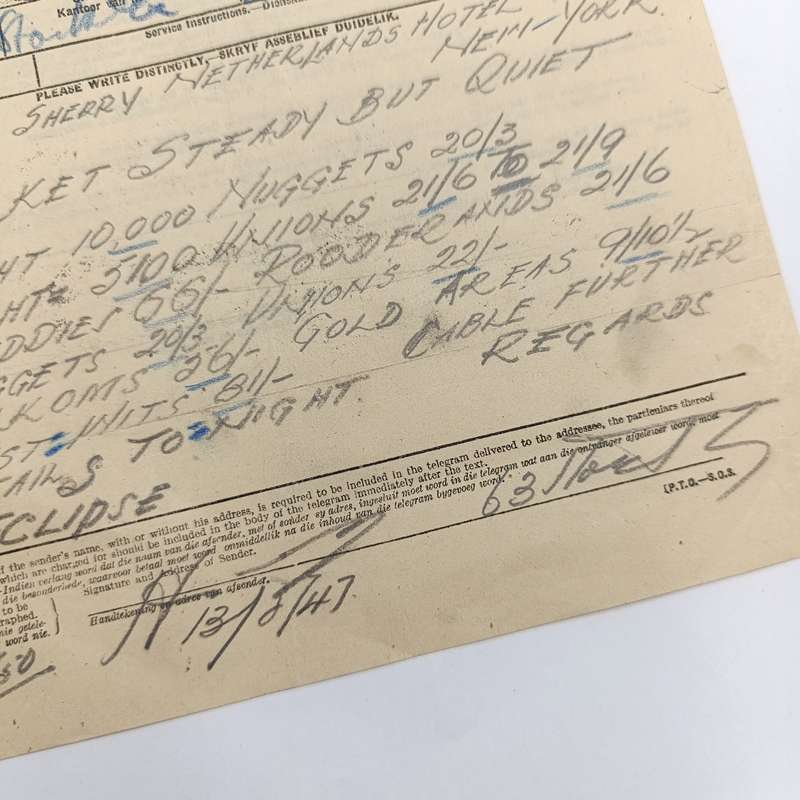 Kantoor van
Service Instructions.—
PLEASE WRITE DISTINCTLY, SKRYF ASSEBLIEF DUIDELIK.
SHERRY NETHERLANDS HOTEL
NEW-YORK
KET STEADY BUT QUIET
HT 10,000 NUGGETS 20/3
HT 5100 UNIONS 21/6 TO 21/9
DDIES 66/- ROODERANDS 21/6
GGETS 20/3 UNIONS 22/-
KOMS 26/- GOLD AREAS 9/10½
ST=WITS 81/- CABLE FURTHER
TAILS TO=NIGHT. REGARDS
ECLIPSE
f the sender's name, with or without his address, is required to be included in the telegram delivered to the addressee, the particulars thereof
which are charged for should be included in the body of the telegram immediately after the text.
-Indien verlang word dat die naam van die afsender, met of sonder sy adres, ingesluit moet word in die telegram wat aan die ontvanger afgelewer word, moet
die besonderhede, waarvoor betaal moet word onmiddellik na die inhoud van die telegram bygevoeg word.
to be
graphed.
nie getele-
word nie.
Signature and Address of Sender.
Handtekening en adres van afsender.
(P.T.O.—S.O.S.
63
13/8/47.